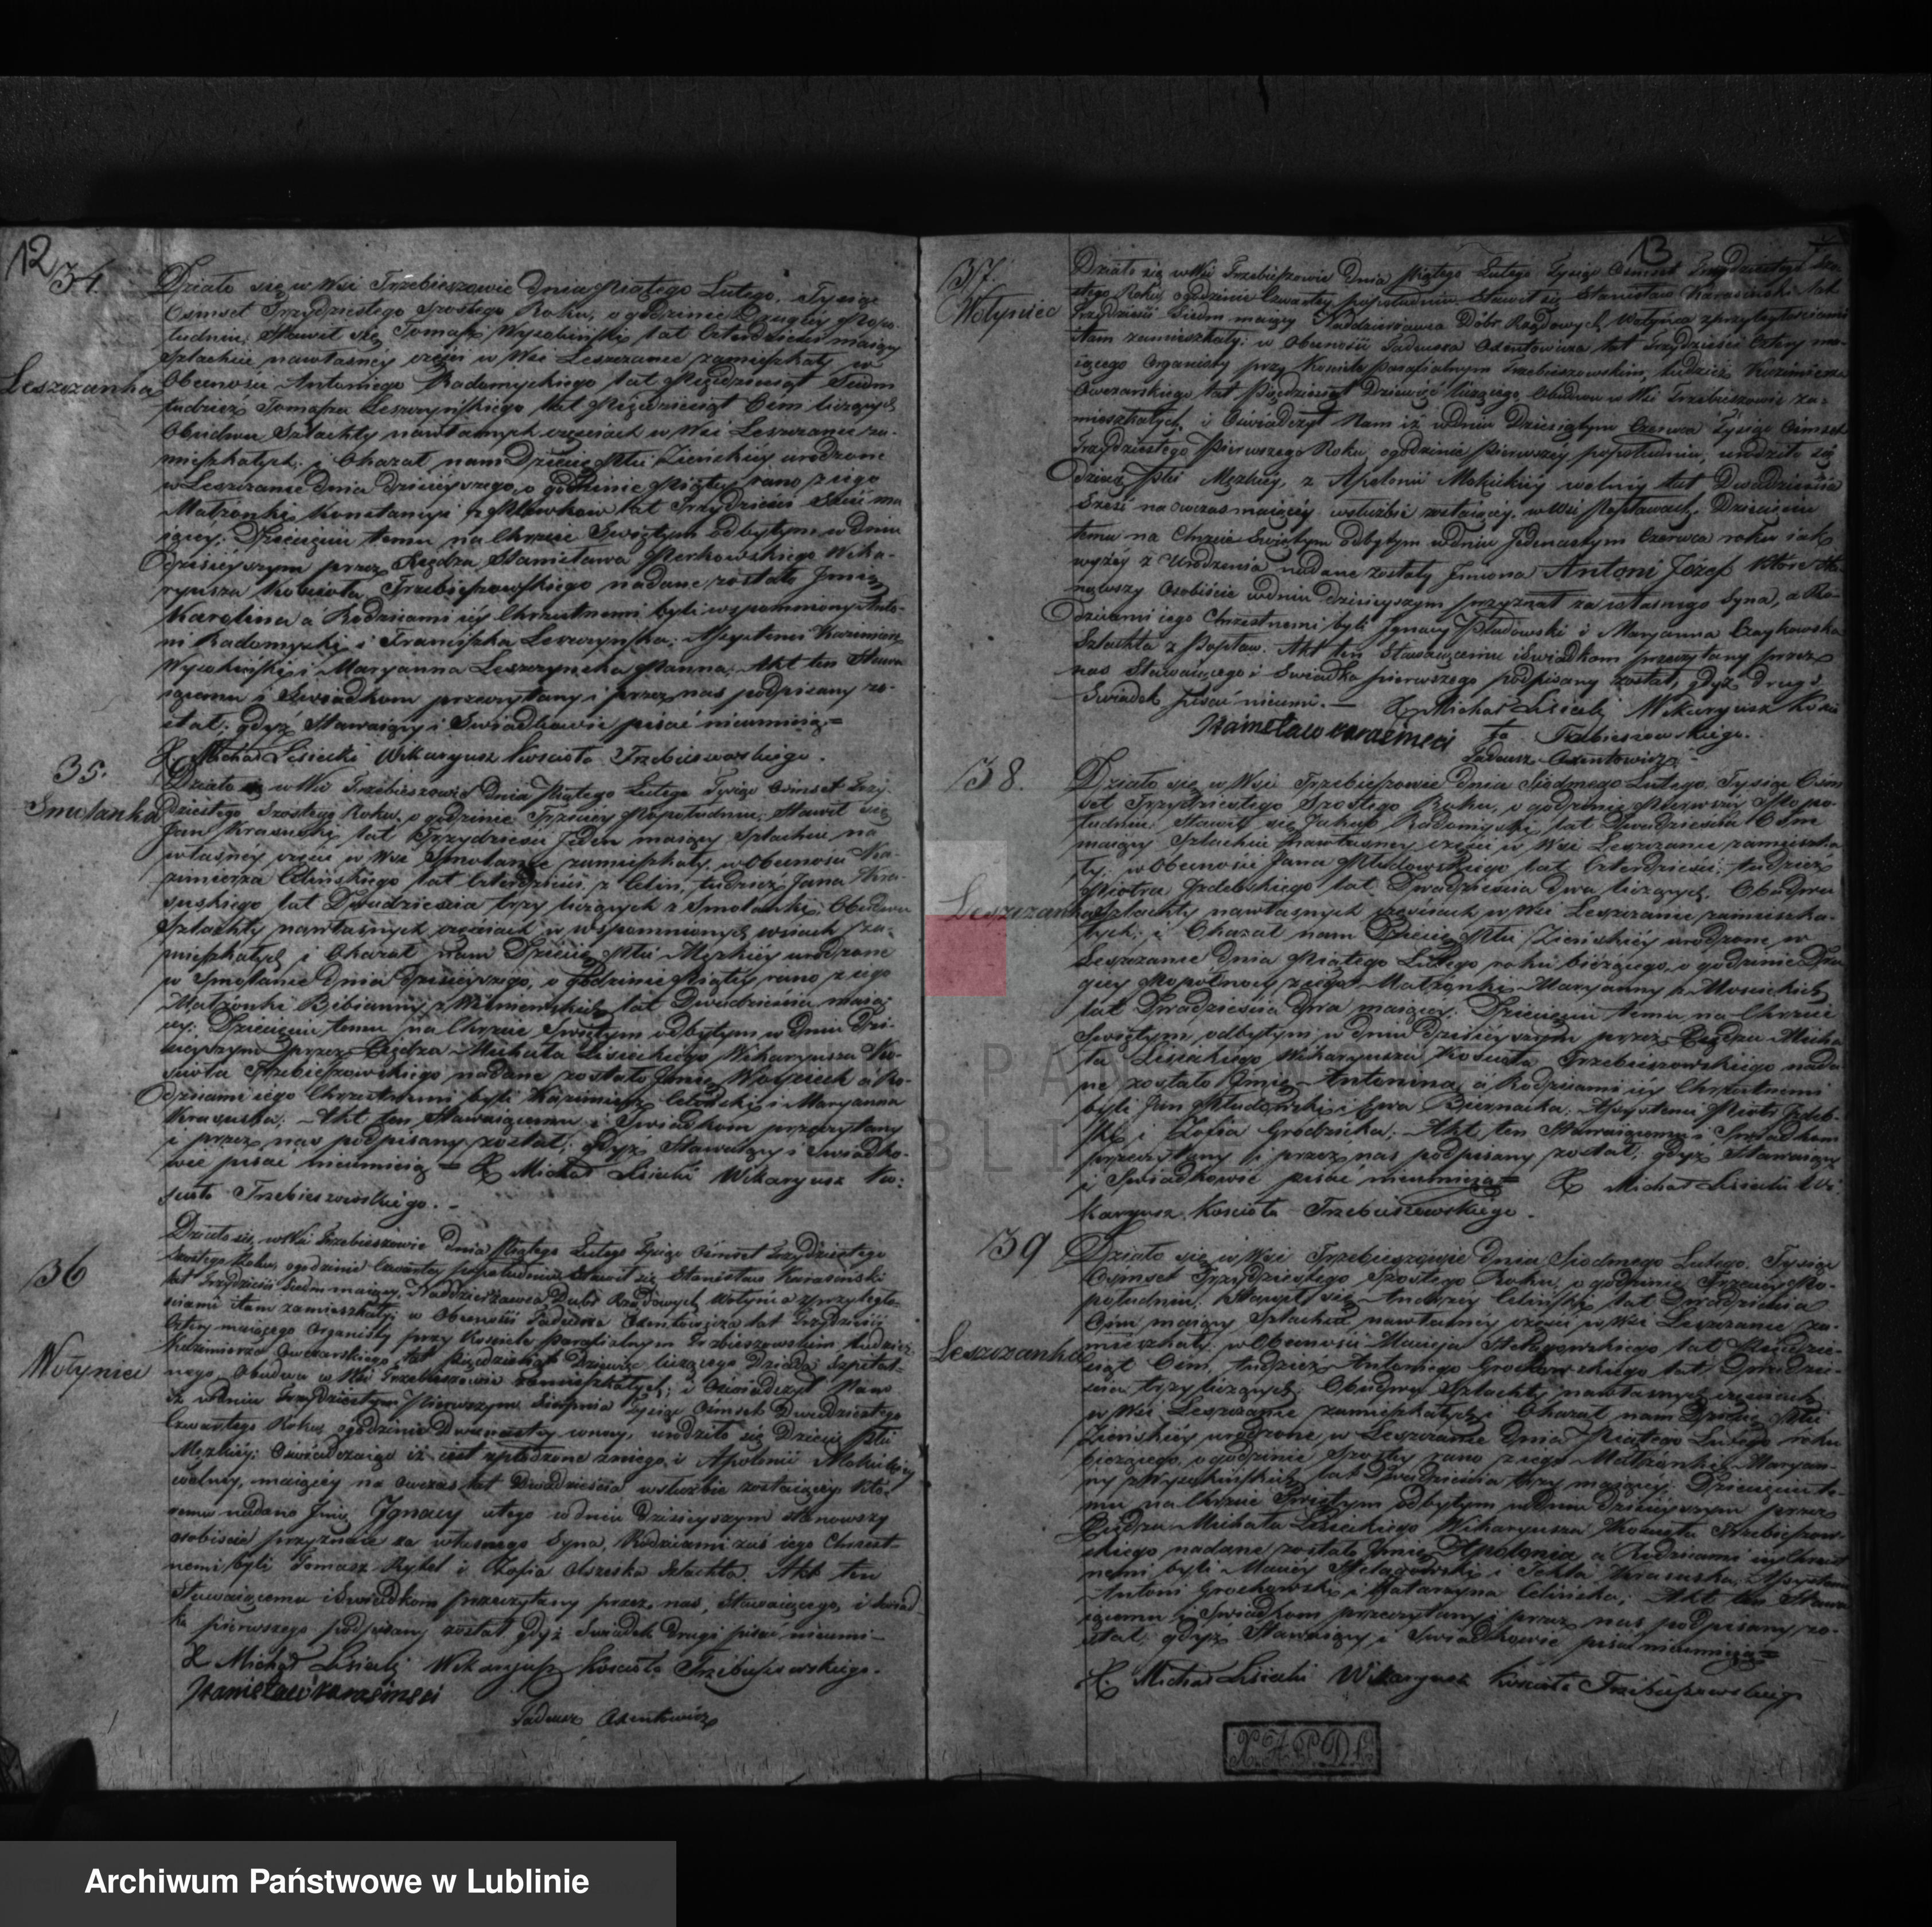 12
34.
Leszczanka
Działo się w Wsi Trzebieszowie Dnia Piątego Lutego, Tysiąc
Osmset Trzydziestego Szostego Roku, o godzinie Drugiey Popo-
łudniu; Stawił się Tomasz Wysokiński lat Czterdzieści maiący
Szlachcic na własney części w Wsi Leszczance zamieszkały w
Obecności Antoniego Radomyskiego lat Pięćdziesiąt Siedm
tudzież Tomasza Leszczyńskiego lat Pięćdziesiąt Osm liczących
Obudwu Szlachty na własnych częściach w Wsi Leszczance za-
mieszkałych; i Okazał nam Dziecię Płci Żeńskiey urodzone
w Leszczance Dnia dzisieyszego, o godzinie Piątey rano z iego
Małżonki Konstancyi z lat Trzydzieści Sześć ma
iącey; Dziecięciu temu na Chrzcie Swiętym odbytym w Dniu
dzisieyszym przez Księdza Stanisława Wika-
ryusza Kościoła Trzebieszowskiego nadane zostało Imię
Karolina a Rodzicami iey Chrzestnemi byli wspomniony Anto-
ni Radomyski i Franciszka Leszczyńska; Assystenci Kazimierz
Wysokiński i Maryanna Leszczyńska Panna. Akt ten Stawa
iącemu i Swiadkom przeczytany i przez nas podpisany zo-
stał; gdyż Stawaiący i Swiadkowie pisać nieumieią =
X. Michał Lisiecki Wikaryusz Kościoła Trzebieszowskiego.
35.
Smolanka
Działo się w Wsi Trzebieszowie Dnia Piątego Lutego Tysiąc Osmset Trzy-
dziestego Szostego Roku, o godzinie Trzeciey Popołudniu; Stawił się
Jan Krasuski lat Trzydzieści Jeden maiący Szlachcic na
własney części w Wsi Smolance zamieszkały, w Obecności Ka-
zimierza Celińskiego lat Czterdzieści z Celin, tudzież Jana Kra-
suskiego lat Dwadzieścia trzy liczących z Smolanki; Obudwu
Szlachty na własnych częściach w wspomnionych wsiach za-
mieszkałych i Okazał nam Dziecię Płci Męzkiey urodzone
w Smolance Dnia dzisieyszego, o godzinie Piątey rano z iego
Małżonki Bibianny z Wiśniewskich lat Dwadzieścia maią-
cey; Dziecięciu temu na Chrzcie Swiętym odbytym w Dniu dzi-
sieyszym przez Księdza Michała Lisieckiego Wikaryusza Ko-
ścioła Trzebieszowskiego nadane zostało Imię Woyciech a Ro-
dzicami iego Chrzestnemi byli Kazimierz Celiński i Maryanna
Krasuska. Akt ten Stawaiącemu i Swiadkom przeczytany
i przez nas podpisany został; gdyż Stawaiący i Swiadko-
wie pisać nieumieią = X Michał Lisiecki Wikaryusz Ko-
ścioła Trzebieszowskiego. -
36
Wołyniec
Działo się w Wsi Trzebieszowie Dnia Piątego Lutego Tysiąc Osmset Trzydziestego
Szostego Roku, ogodzinie Czwartey popołudniu Stawił się Stanisław Karasiński
lat Trzydzieści Siedm maiący, Naddzierżawca Dóbr Rządowych Wołyńca z przyległo-
ściami i tam zamieszkały; w Obecności Tadeusza Axentowicza lat Trzydzieści
Cztery maiącego Organisty przy Kościele parafialnym Trzebieszowskim, tudzież
Kazimierza Owczarskiego lat Pięćdziesiąt Dziewięć liczącego Dziada Szpital-
nego, Obudwu w Wsi Trzebieszowie zamieszkałych; i Oświadczył Nam
iż w dniu Trzydziestym Pierwszym Sierpnia Tysiąc Osmset Dwudziestego
Czwartego Roku, ogodzinie Dwunastey w nocy, urodziło się Dziecię Płci
Męzkiey; Oświadczaiąc iż iest spłodzone z niego, i Apolonii Mokickiey
wolney, maiącey na owczas lat Dwadzieścia w służbie zostaiącey, któ-
remu nadano Imię Ignacy którego w dniu Dzisieyszym stanowszy
osobiście przyznaie za własnego Syna, Rodzicami zaś iego Chrzest-
nemi byli Tomasz Rybel i Zofia Olszeska Szlachta. Akt ten
Stawaiącemu i Swiadkom przeczytany przez nas, Stawaiącego, i Swiad-
ka pierwszego podpisany został gdyż Swiadek drugi pisać nieumi-
X Michał Lisiecki Wikaryusz Kościoła Trzebieszowskiego.
Stanisław Karasinski
Tadeusz Axentowicz
13
37.
Wołyniec
Działo się w Wsi Trzebieszowie Dnia Piątego Lutego Tysiąc Osmset Trzydziestego Szo-
stego Roku, ogodzinie Czwartey popołudniu. Stawił się Stanisław Karasiński lat
Trzydzieści Siedm maiący Naddzierżawca Dóbr Rządowych Wołyńca z przyległościami
i tam zamieszkały; w Obecności Tadeusza Axentowicza lat Trzydzieści Cztery ma-
iącego Organisty przy Kościele parafialnym Trzebieszowskim, tudzież Kazimierza
Owczarskiego lat Pięćdziesiąt Dziewięć liczącego, Obudwu w Wsi Trzebieszowie za-
mieszkałych, i Oświadczył Nam iż w dniu Dziesiątym Czerwca Tysiąc Osmset
Trzydziestego Pierwszego Roku, ogodzinie pierwszey popołudniu, urodziło się
Dziecię Płci Męzkiey, z Apolonii Mokickiey wolney lat Dwadzieścia
Sześć na owczas maiącey w służbie zostaiącey, w Wsi Popławach, Dziecięciu
temu na Chrzcie Swiętym Odbytym w dniu Jedenastym Czerwca roku iak
wyżey z Urodzenia nadane zostały Imiona Antoni Józef które sta-
nąwszy Osobiście w dniu dzisieyszym przyznał za własnego Syna, a Ro-
dzicami iego Chrzestnemi byli Ignacy Płudowski i Maryanna Czaykowska
Szlachta z Popław. Akt ten Stawaiącemu i Swiadkom przeczytany przez
nas Stawaiącego i Swiadka pierwszego podpisany został, gdyż drugi
Swiadek pisać nieumie. - X Michał Lisiecki Wikaryusz Kościo
ła Trzebieszowskiego.
Stanisław Karasinski
Tadeusz Axentowicz
38.
Leszczanka
Działo się w Wsi Trzebieszowie Dnia Siodmego Lutego, Tysiąc Osm
set Trzydziestego Szostego Roku, o godzinie Pierwszey Popo-
łudniu; Stawił się Jakub Radomyski lat Dwadzieścia Osm
maiący Szlachcic na własney części w Wsi Leszczance zamieszka
ły; w Obecności Jana Płudowskiego lat Czterdzieści; tudzież
Piotra Izdebskiego lat Dwadzieścia dwa liczących Obudwu
Szlachty na własnych częściach w Wsi Leszczance zamieszka-
łych; i Okazał nam Dziecię Płci Żeńskiey urodzone w
Leszczance Dnia Piątego Lutego roku bieżącego, o godzinie Dru
giey Popołnocy z iego Małżonki Maryanny z Mościckich
lat Dwadzieścia dwa maiącey; Dziecięciu temu na Chrzcie
Swiętym odbytym w dniu dzisieyszym przez Księdza Micha
ła Lisieckiego Wikaryusza Kościoła Trzebieszowskiego nada
ne zostało Imię Antonina, a Rodzicami iey Chrzestnemi
byli Jan Płudowski i Ewa Biernacka; Assystenci Piotr Izdeb-
ski i Zofia Grodzicka; Akt ten Stawaiącemu i Swiadkom
przeczytany i przez nas podpisany został; gdyż Stawaiący
i Swiadkowie pisać nieumieią = X Michał Lisiecki Wi-
karyusz Kościoła Trzebieszowskiego.
39
Leszczanka
Działo się w Wsi Trzebieszowie Dnia Siodmego Lutego, Tysiąc
Osmset Trzydziestego Szostego Roku, o godzinie Trzeciey Po-
południu; Stawił się Andrzey Celiński lat Dwadzieścia
Osm maiący Szlachcic na własney części w Wsi Leszczance za-
mieszkały; w Obecności Macieja lat Pięćdzie-
siąt Osm, tudzież Antoniego Grochowskiego lat Dwadzie-
ścia trzy liczących; Obudwu Szlachty na własnych częściach
w Wsi Leszczance zamieszkałych; i Okazał nam Dziecię Płci
Żeńskiey urodzone w Leszczance Dnia Piątego Lutego roku
bieżącego, o godzinie Szostey rano z iego Małżonki Maryan-
ny z Wysokińskich lat Dwadzieścia trzy maiącey; Dziecięciu te-
mu na Chrzcie Swiętym odbytym w Dniu dzisieyszym przez
Księdza Michała Lisieckiego Wikaryusza Kościoła Trzebieszow-
skiego nadane zostało Imię Apolonia, a Rodzicami iey Chrzest
nemi byli Maciey i Tekla Krasuska, Assystenci
Antoni Grochowski i Katarzyna Celińska; Akt ten Stawa
iącemu i Swiadkom przeczytany i przez nas podpisany zo-
stał; gdyż Stawaiący i Swiadkowie pisać nieumieią =
X. Michał Lisiecki Wikaryusz Kościoła Trzebieszowskiego
Archiwum Państwowe w Lublinie